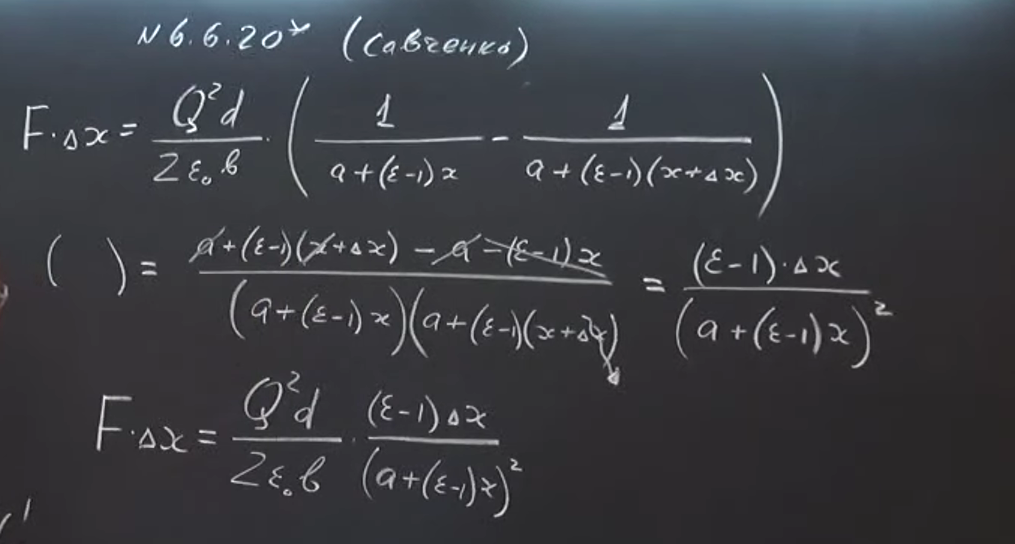 N 6.6.20* (Савченко)
F·Δx = \frac{Q²d}{2ε₀b} · ( \frac{1}{a+(ε-1)x} - \frac{1}{a+(ε-1)(x+Δx)} )
( ) = \frac{a+(ε-1)(x+Δx) - a - (ε-1)x}{(a+(ε-1)x)(a+(ε-1)(x+Δx)} = \frac{(ε-1)·Δx}{(a+(ε-1)x)²}
F·Δx = \frac{Q²d}{2ε₀b} · \frac{(ε-1)Δx}{(a+(ε-1)x)²}